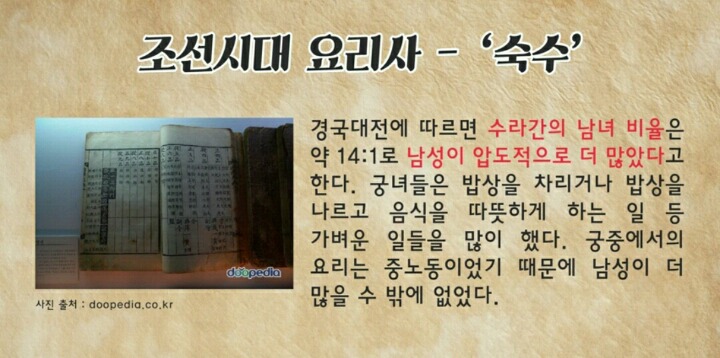 조선시대 요리사 - ‘숙수’
경국대전에 따르면 수라간의 남녀 비율은
약 14:1로 남성이 압도적으로 더 많았다고
한다. 궁녀들은 밥상을 차리거나 밥상을
나르고 음식을 따뜻하게 하는 일 등
가벼운 일들을 많이 했다. 궁중에서의
요리는 중노동이었기 때문에 남성이 더
많을 수 밖에 없었다.
doopedia
사진 출처 : doopedia.co.kr